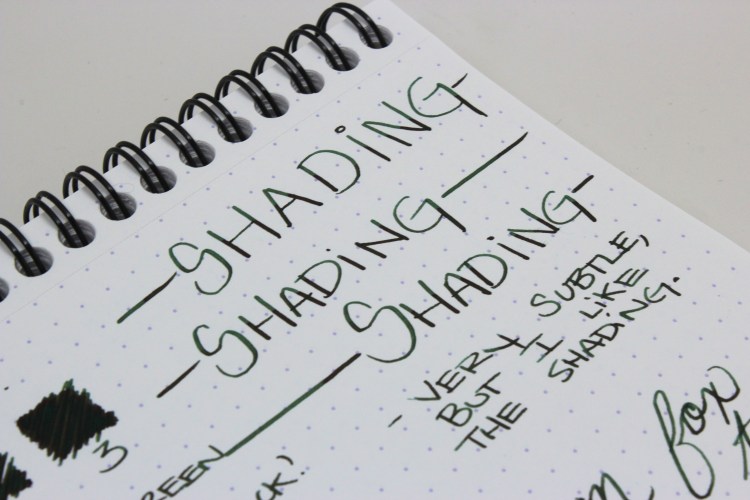 -SHADiNG-
-SHADiNG-
-SHADiNG-
- VERY SUBTLE,
BUT I LiKE
THE SHADING.
3
fox